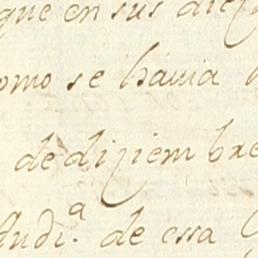 que en sus
omo se hauia
de diziembre
Audi.ª de essa